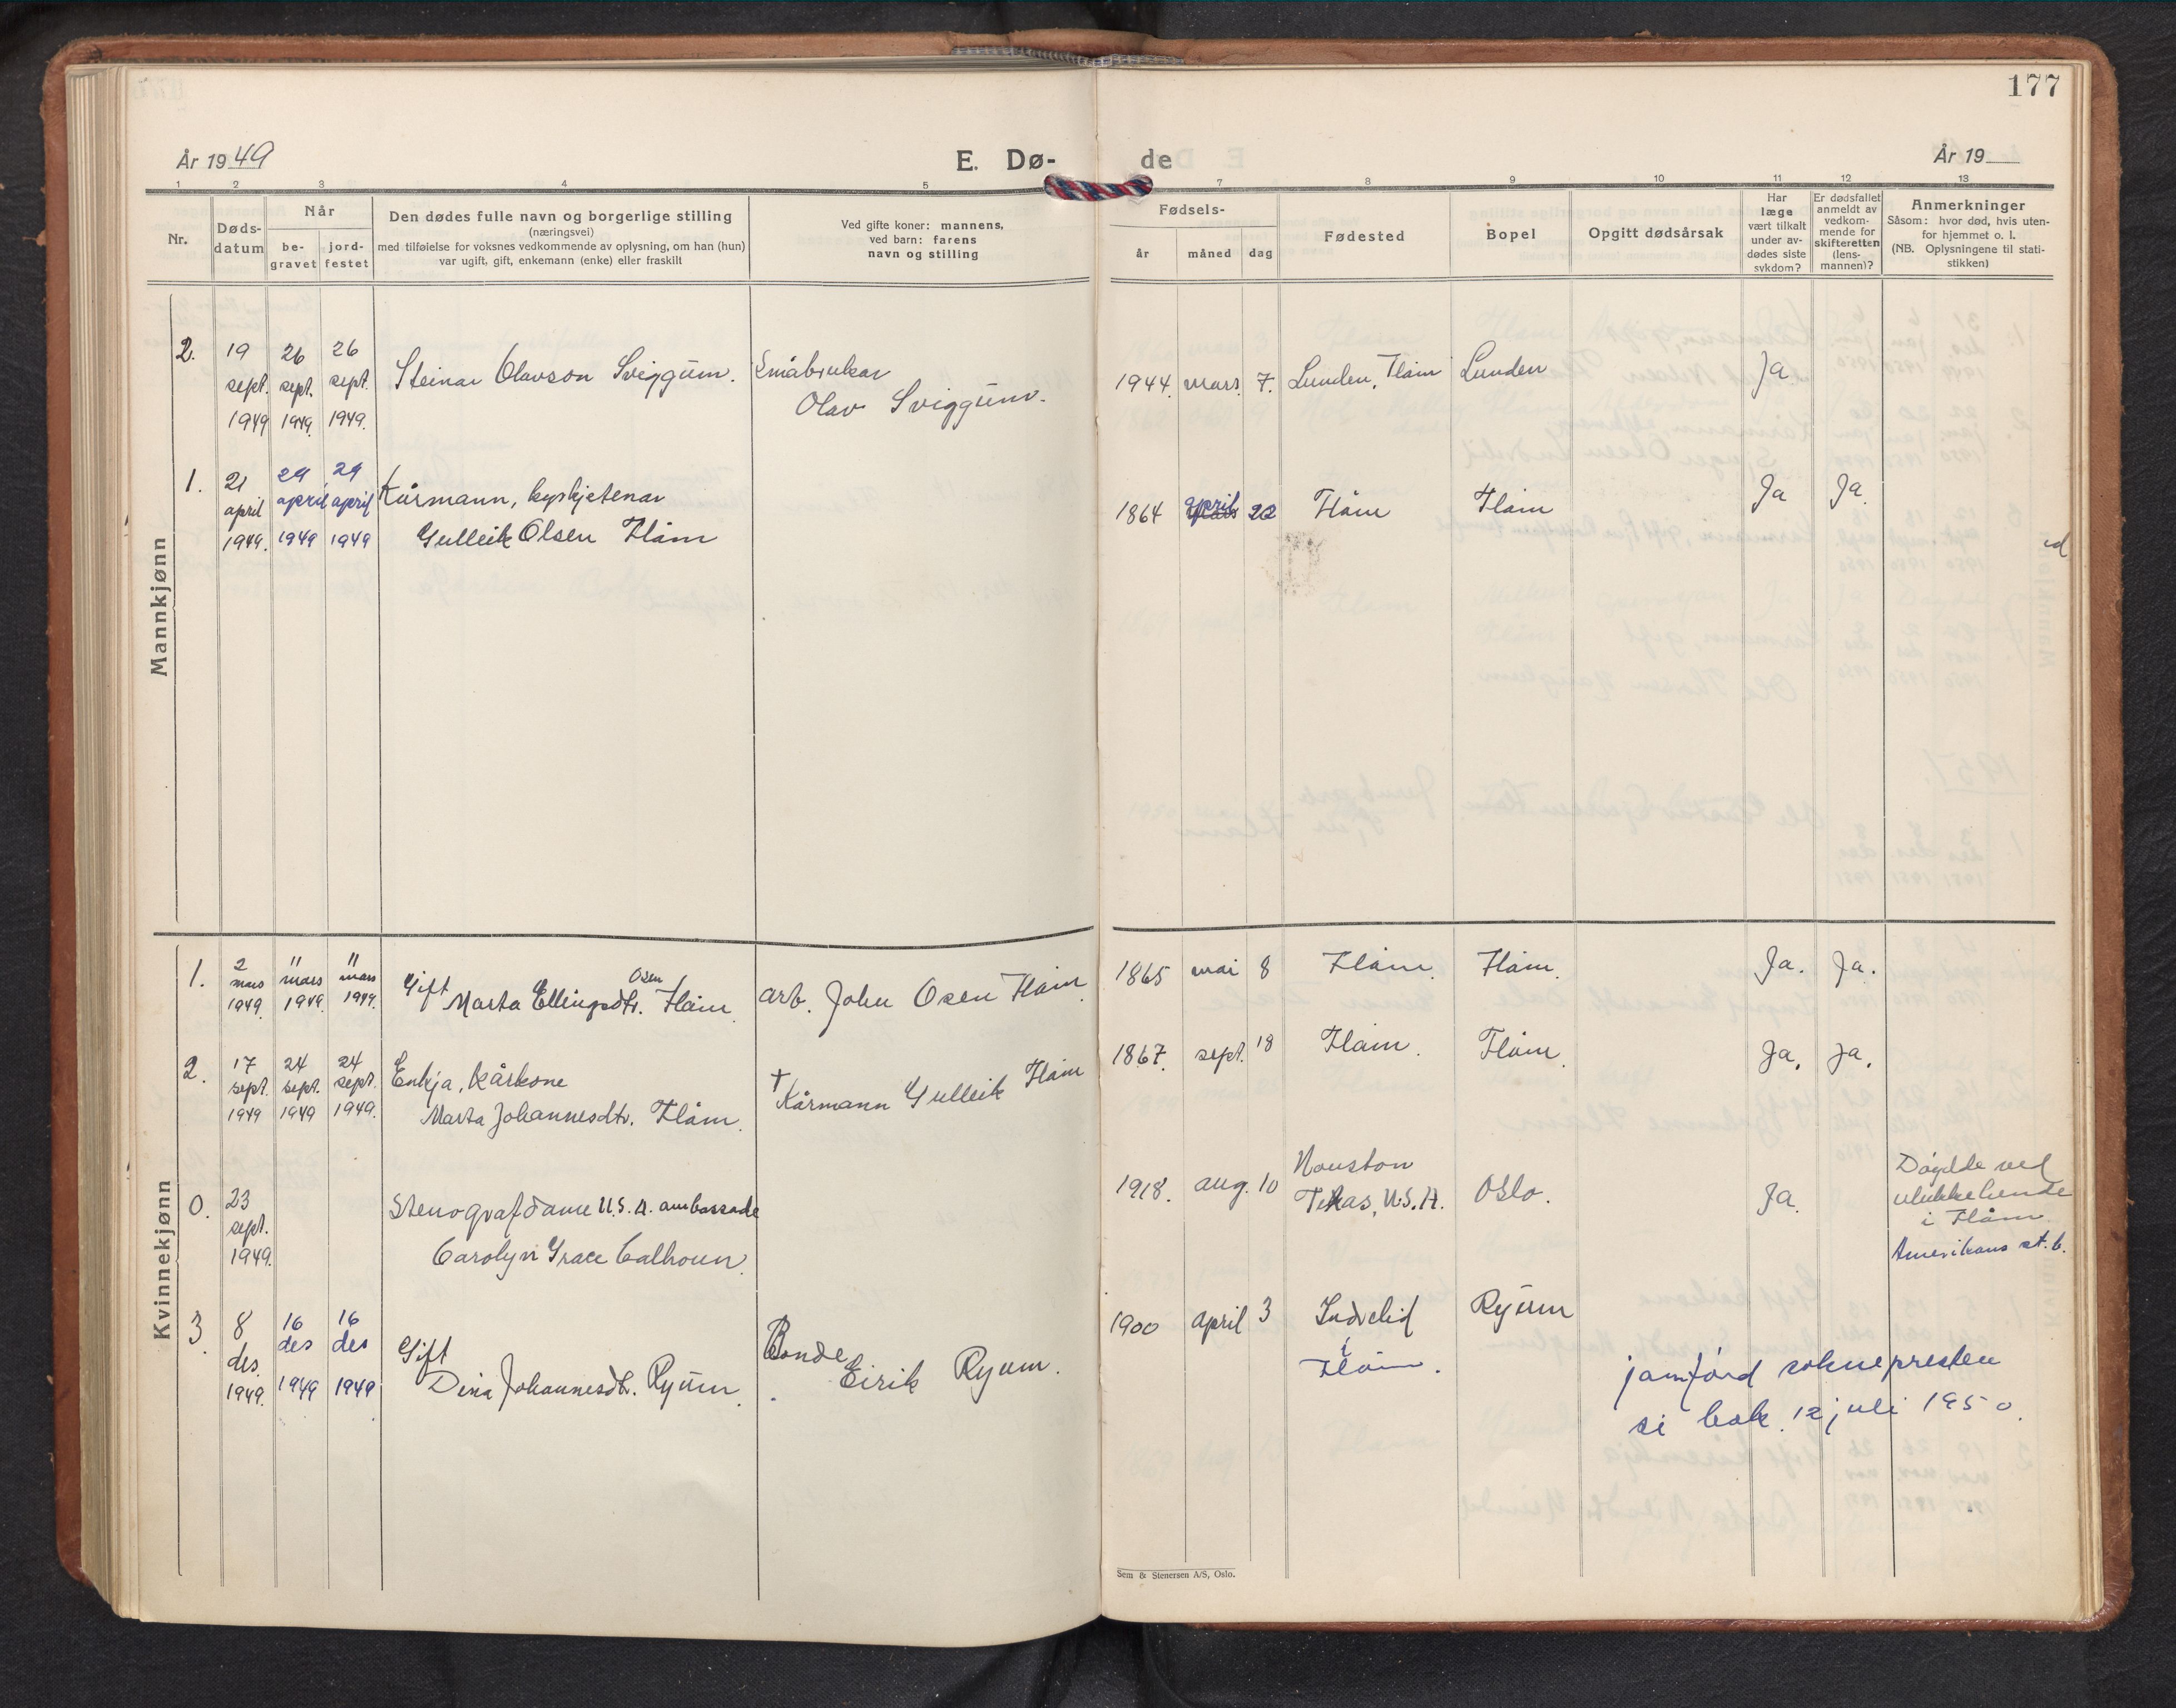 177
År 1949
E. Dø-
de
År 19
1 2 3 4 5 7 8 9 10 11 12 13
Nr.
Døds-
datum
Når
be-
gravet
jord-
festet
Den dødes fulle navn og borgerlige stilling
(næringsvei)
med tilføielse for voksnes vedkommende av oplysning, om han (hun)
var ugift, gift, enkemann (enke) eller fraskilt
Ved gifte koner: mannens,
ved barn: farens
navn og stilling
Fødsels-
år måned dag
Fødested
Bopel
Opgitt dødsårsak
Har
læge
vært tilkalt
under av-
dødes siste
sykdom?
Er dødsfallet
anmeldt av
vedkom-
mende for
skifteretten
(lens-
mannen)?
Anmerkninger
Såsom: hvor død, hvis uten-
for hjemmet o. l.
(NB. Oplysningene til stati-
stikken)
Mannkjønn
2.
19
sept.
1949
26
sept.
1949.
26
sept.
1949.
Steinar Olavson Sviggum.
Småbrukar
Olav Sviggum.
1944. mars. 7.
Lunden, Flåm
Lunden
Ja
1.
21
april
1949.
29
april
1949
29
april
1949
Kårmann, kyrkjetenar
Gulleik Olsen Flåm
1864 april 22
Flåm
Flåm
Ja
Ja
Kvinnekjønn
1.
2
mars
1949.
11
mars
1949.
11
mars
1949.
Gift
Osen
Marta Ellingsdtr. Flåm.
arb. John Osen Flåm
1865 mai 8
Flåm.
Flåm.
Ja.
Ja.
2.
17
sept.
1949
24
sept.
1949
24
sept.
1949.
Enkja, kårkone
Marta Johannesdtr. Flåm.
† Kårmann Gulleik Flåm
1867. sept. 18
Flåm.
Flåm.
Ja.
Ja.
0.
23
sept.
1949.
Stenografdame U.S.A. ambassade
Carolyn Grace Calhoun.
1918. aug. 10
Houston
Texas, U.S.A.
Oslo.
Ja.
Døydde ved
ulukkehende
i Flåm.
Amerikans st.b.
3.
8
des.
1949.
16
des
1949
16
des
1949
Gift
Dina Johannesdtr. Ryum.
Bonde
Eirik Ryum.
1900 april 3
Indrelid
i
Flåm.
Ryum
jamførd soknepresten
si bok. 12 juli 1950.
Sem & Stenersen A/S, Oslo.